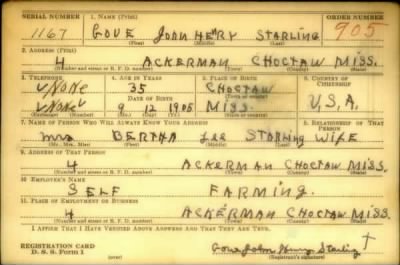 SERIAL NUMBER 1. NAME (Print) ORDER NUMBER
1167 GOVE JOHN HENRY STARLING 905
(First) (Middle) (Last)
2. ADDRESS (Print)
4 ACKERMAN CHOCTAW MISS.
(Number and street or R. F. D. number) (Town) (County) (State)
3. TELEPHONE 4. AGE IN YEARS 5. PLACE OF BIRTH 6. COUNTRY OF CITIZENSHIP
NONE 35 CHOCTAW
DATE OF BIRTH (Town or county)
9 12 1905 MISS. U.S.A.
(Exchange) (Number) (Mo.) (Day) (Yr.) (State or country)
7. NAME OF PERSON WHO WILL ALWAYS KNOW YOUR ADDRESS 8. RELATIONSHIP OF THAT PERSON
Mrs BERTHA Lee STARLING WIFE
(Mr., Mrs., Miss) (First) (Middle) (Last)
9. ADDRESS OF THAT PERSON
4 ACKERMAN CHOCTAW MISS.
(Number and street or R. F. D. number) (Town) (County) (State)
10. EMPLOYER'S NAME
SELF FARMING.
11. PLACE OF EMPLOYMENT OR BUSINESS
4 ACKERMAN CHOCTAW MISS.
(Number and street or R. F. D. number) (Town) (County) (State)
I AFFIRM THAT I HAVE VERIFIED ABOVE ANSWERS AND THAT THEY ARE TRUE.
REGISTRATION CARD
D. S. S. Form 1 (over) Gove John Henry Starling
(Registrant's signature)